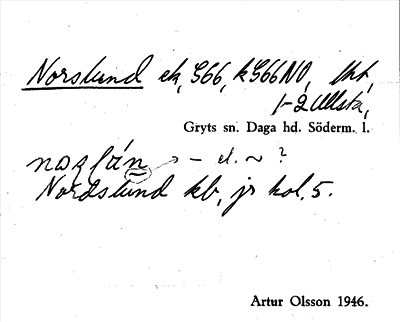 Norslund ek, 966, k966NO, lht,
1-2 Ullsta,
Gryts sn. Daga hd. Söderm. l.
noslán → - el. ~ ?
Nordslund kb, jr kol. 5.
Artur Olsson 1946.